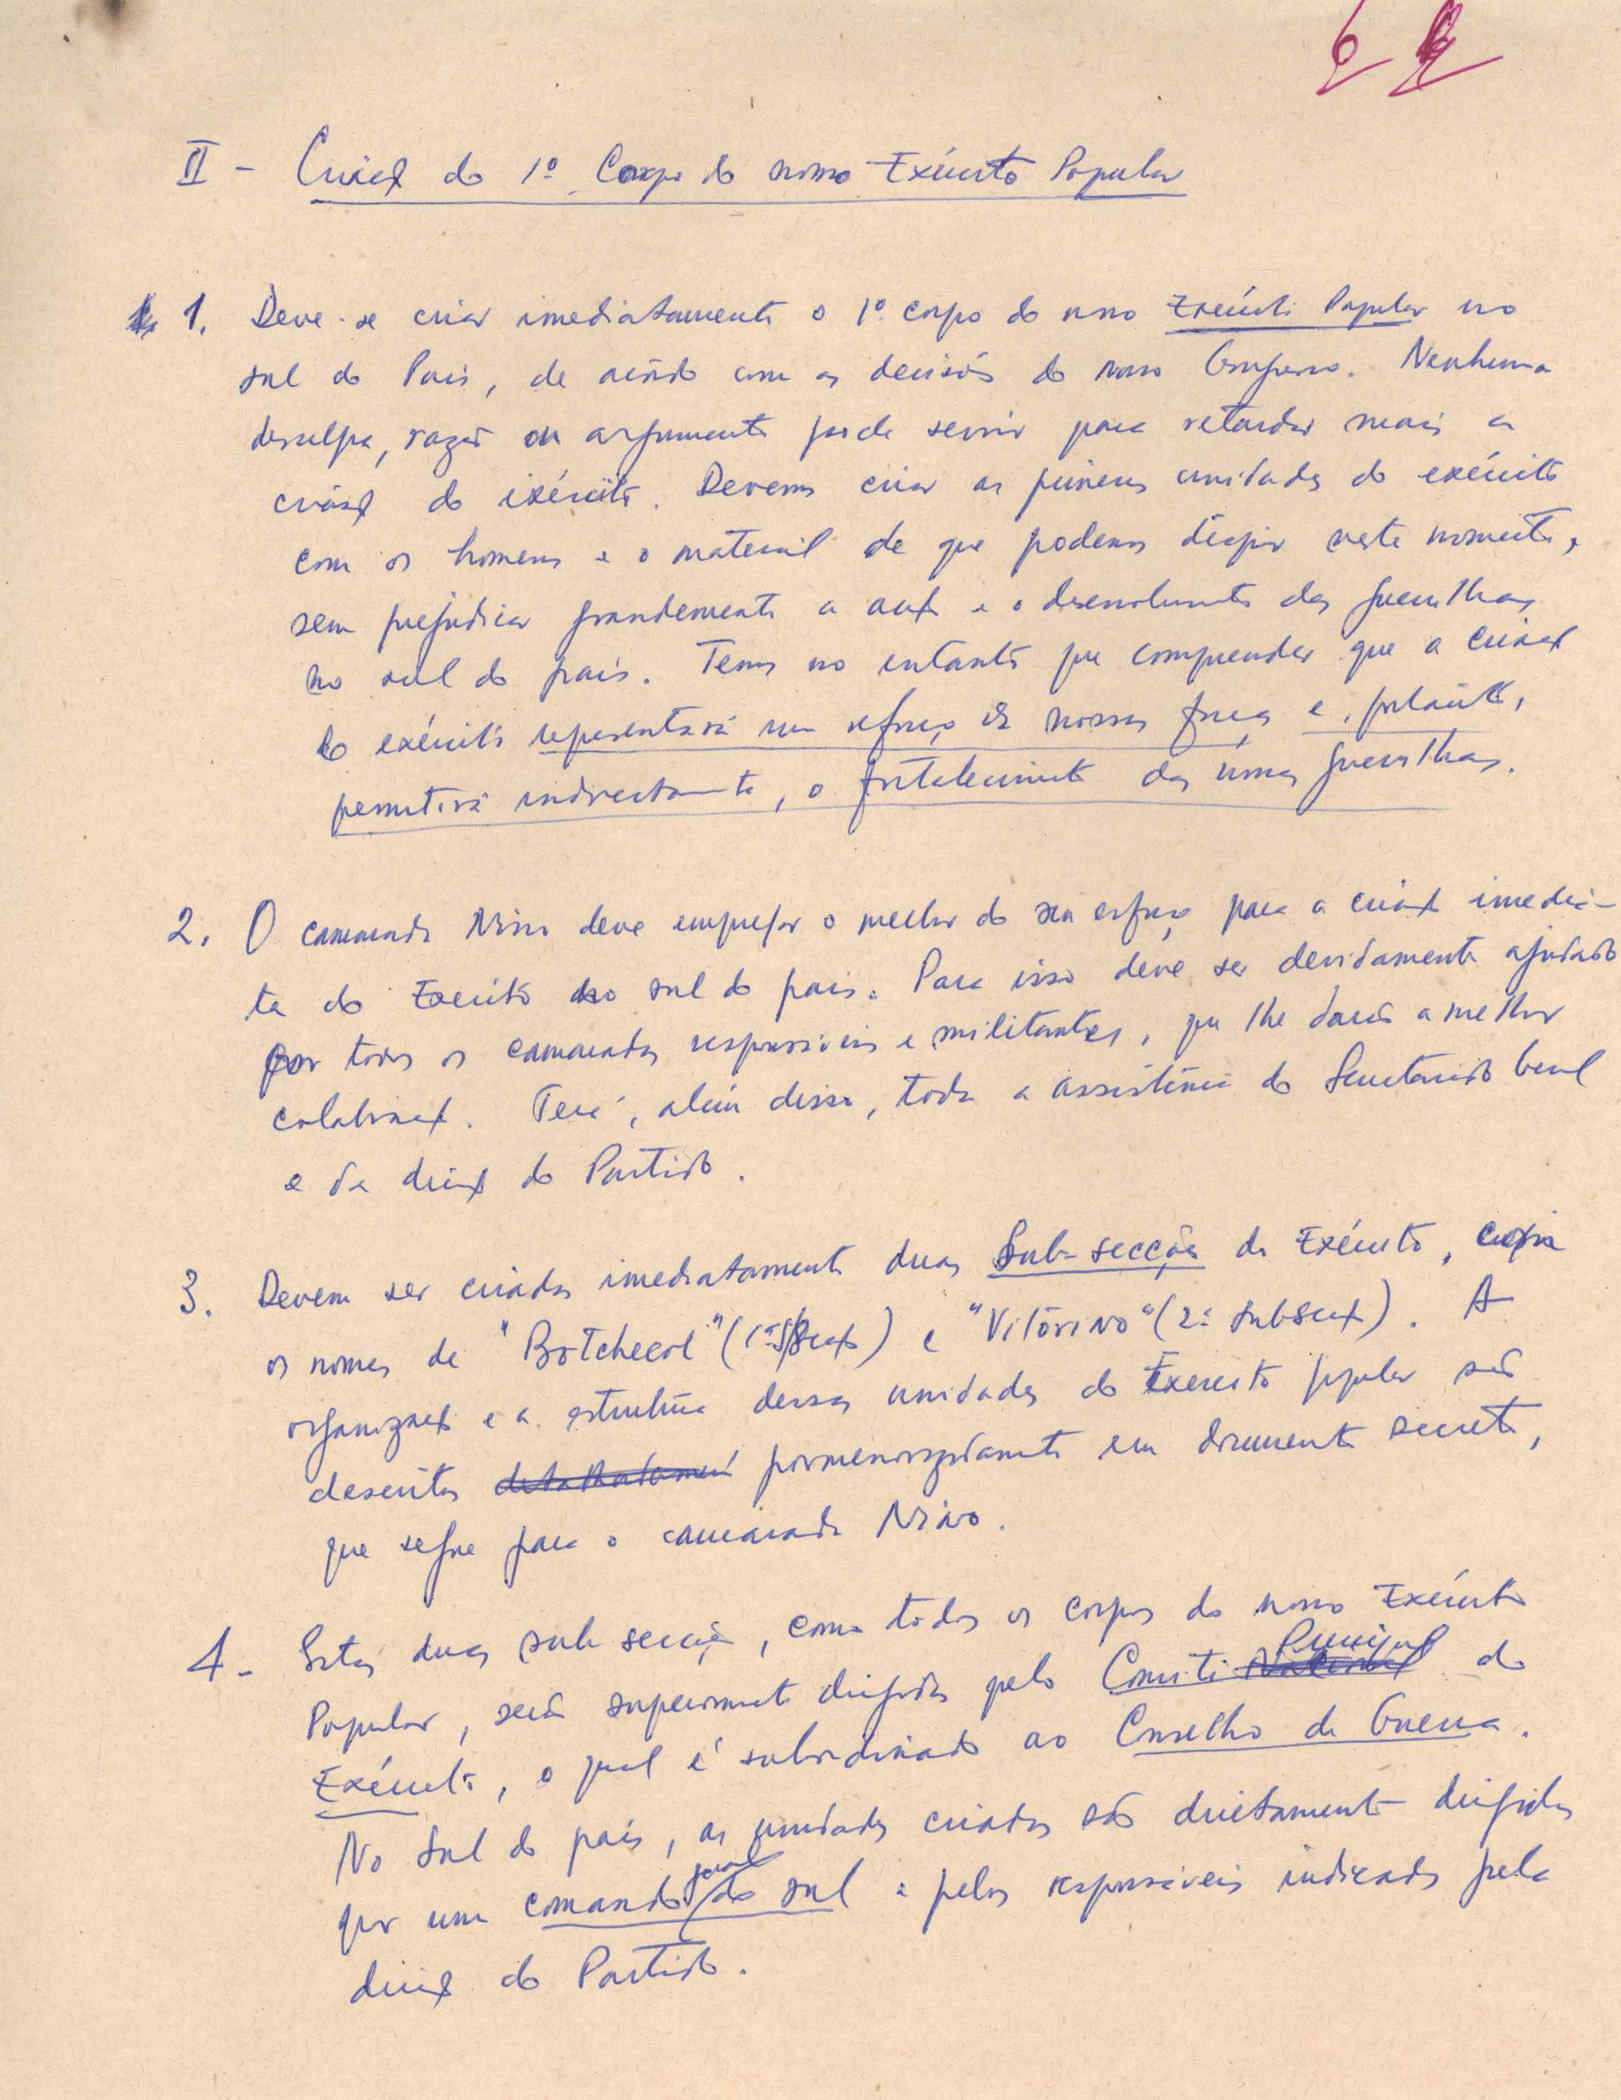 6
II - Criação do 1º Corpo do nosso Exército Popular
1. Deve-se criar imediatamente o 1º corpo do nosso Exército Popular no
sul do País, de acôrdo com as decisões do nosso Congresso. Nenhuma
desculpa, razão ou argumento pode servir para retardar mais a
criação do exército. Devemos criar as primeiras unidades do exército
com os homens e o material de que podemos dispor neste momento,
sem prejudicar grandemente a acção e o desenvolvimento das guerrilhas
no sul do país. Temos no entanto que compreender que a criação
do exército representará um reforço das nossas forças e, portanto,
permitirá indirectamente, o fortalecimento das nossas guerrilhas.
2. O camarada Nino deve empregar o melhor do seu esforço para a criação imedia-
ta do Exército no sul do país. Para isso deve ser devidamente ajudado
por todos os camaradas responsáveis e militantes, que lhe darão a melhor
colaboração. Terá, além disso, toda a assistência do Secretariado Geral
e da direcção do Partido.
3. Devem ser criadas imediatamente duas Sub-secções do Exército, com
os nomes de "Botchecol" (1ª S/Secção) e "Vitorino" (2ª Subsecção). A
organização e a estrutura dessas unidades do Exército popular são
descritas pormenorizadamente em documento secreto,
que segue para o camarada Nino.
4 - Estas duas sub secções, como todos os corpos do nosso Exército
Popular, serão superiormente dirigidas pelo Comité Principal do
Exército, o qual é subordinado ao Conselho de Guerra.
No Sul do país, as unidades criadas são directamente dirigidas
por um comando geral do sul e pelos responsáveis indicados pela
direcção do Partido.